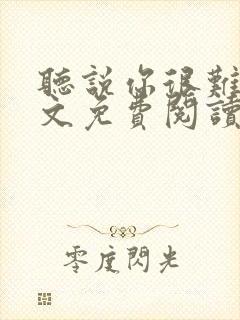 聽說你很難
文免費閱讀
零度閃光